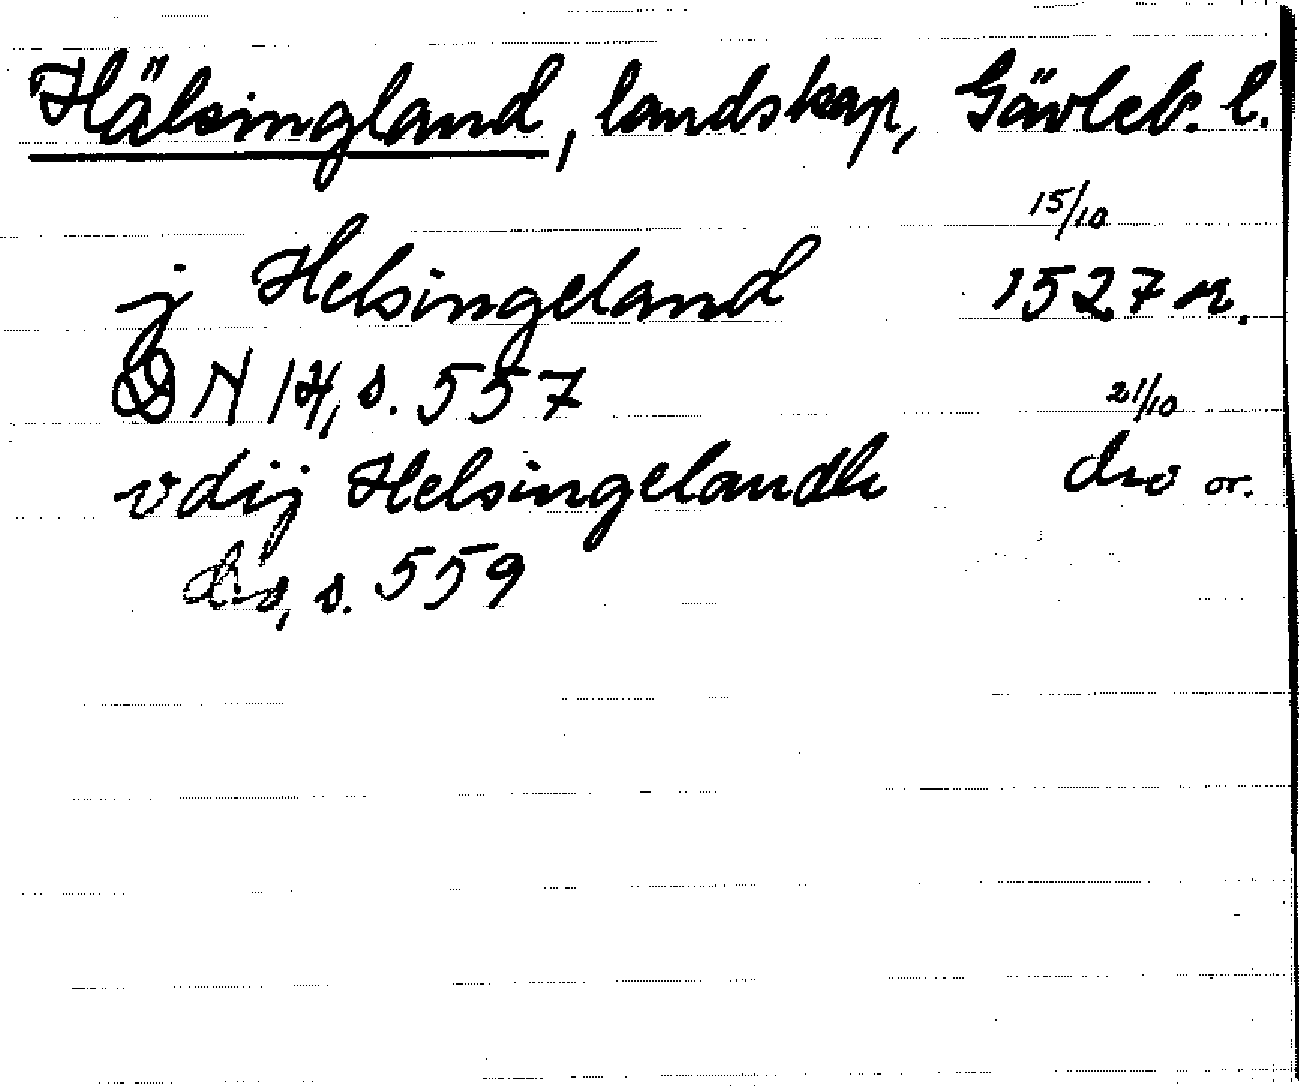 Hälsingland, landskap, Gävleb. l.
15/10
j Helsingeland 1527 n.
DN 14, s. 557
21/10
vdij Helsingelandh dso or.
ds, s. 559